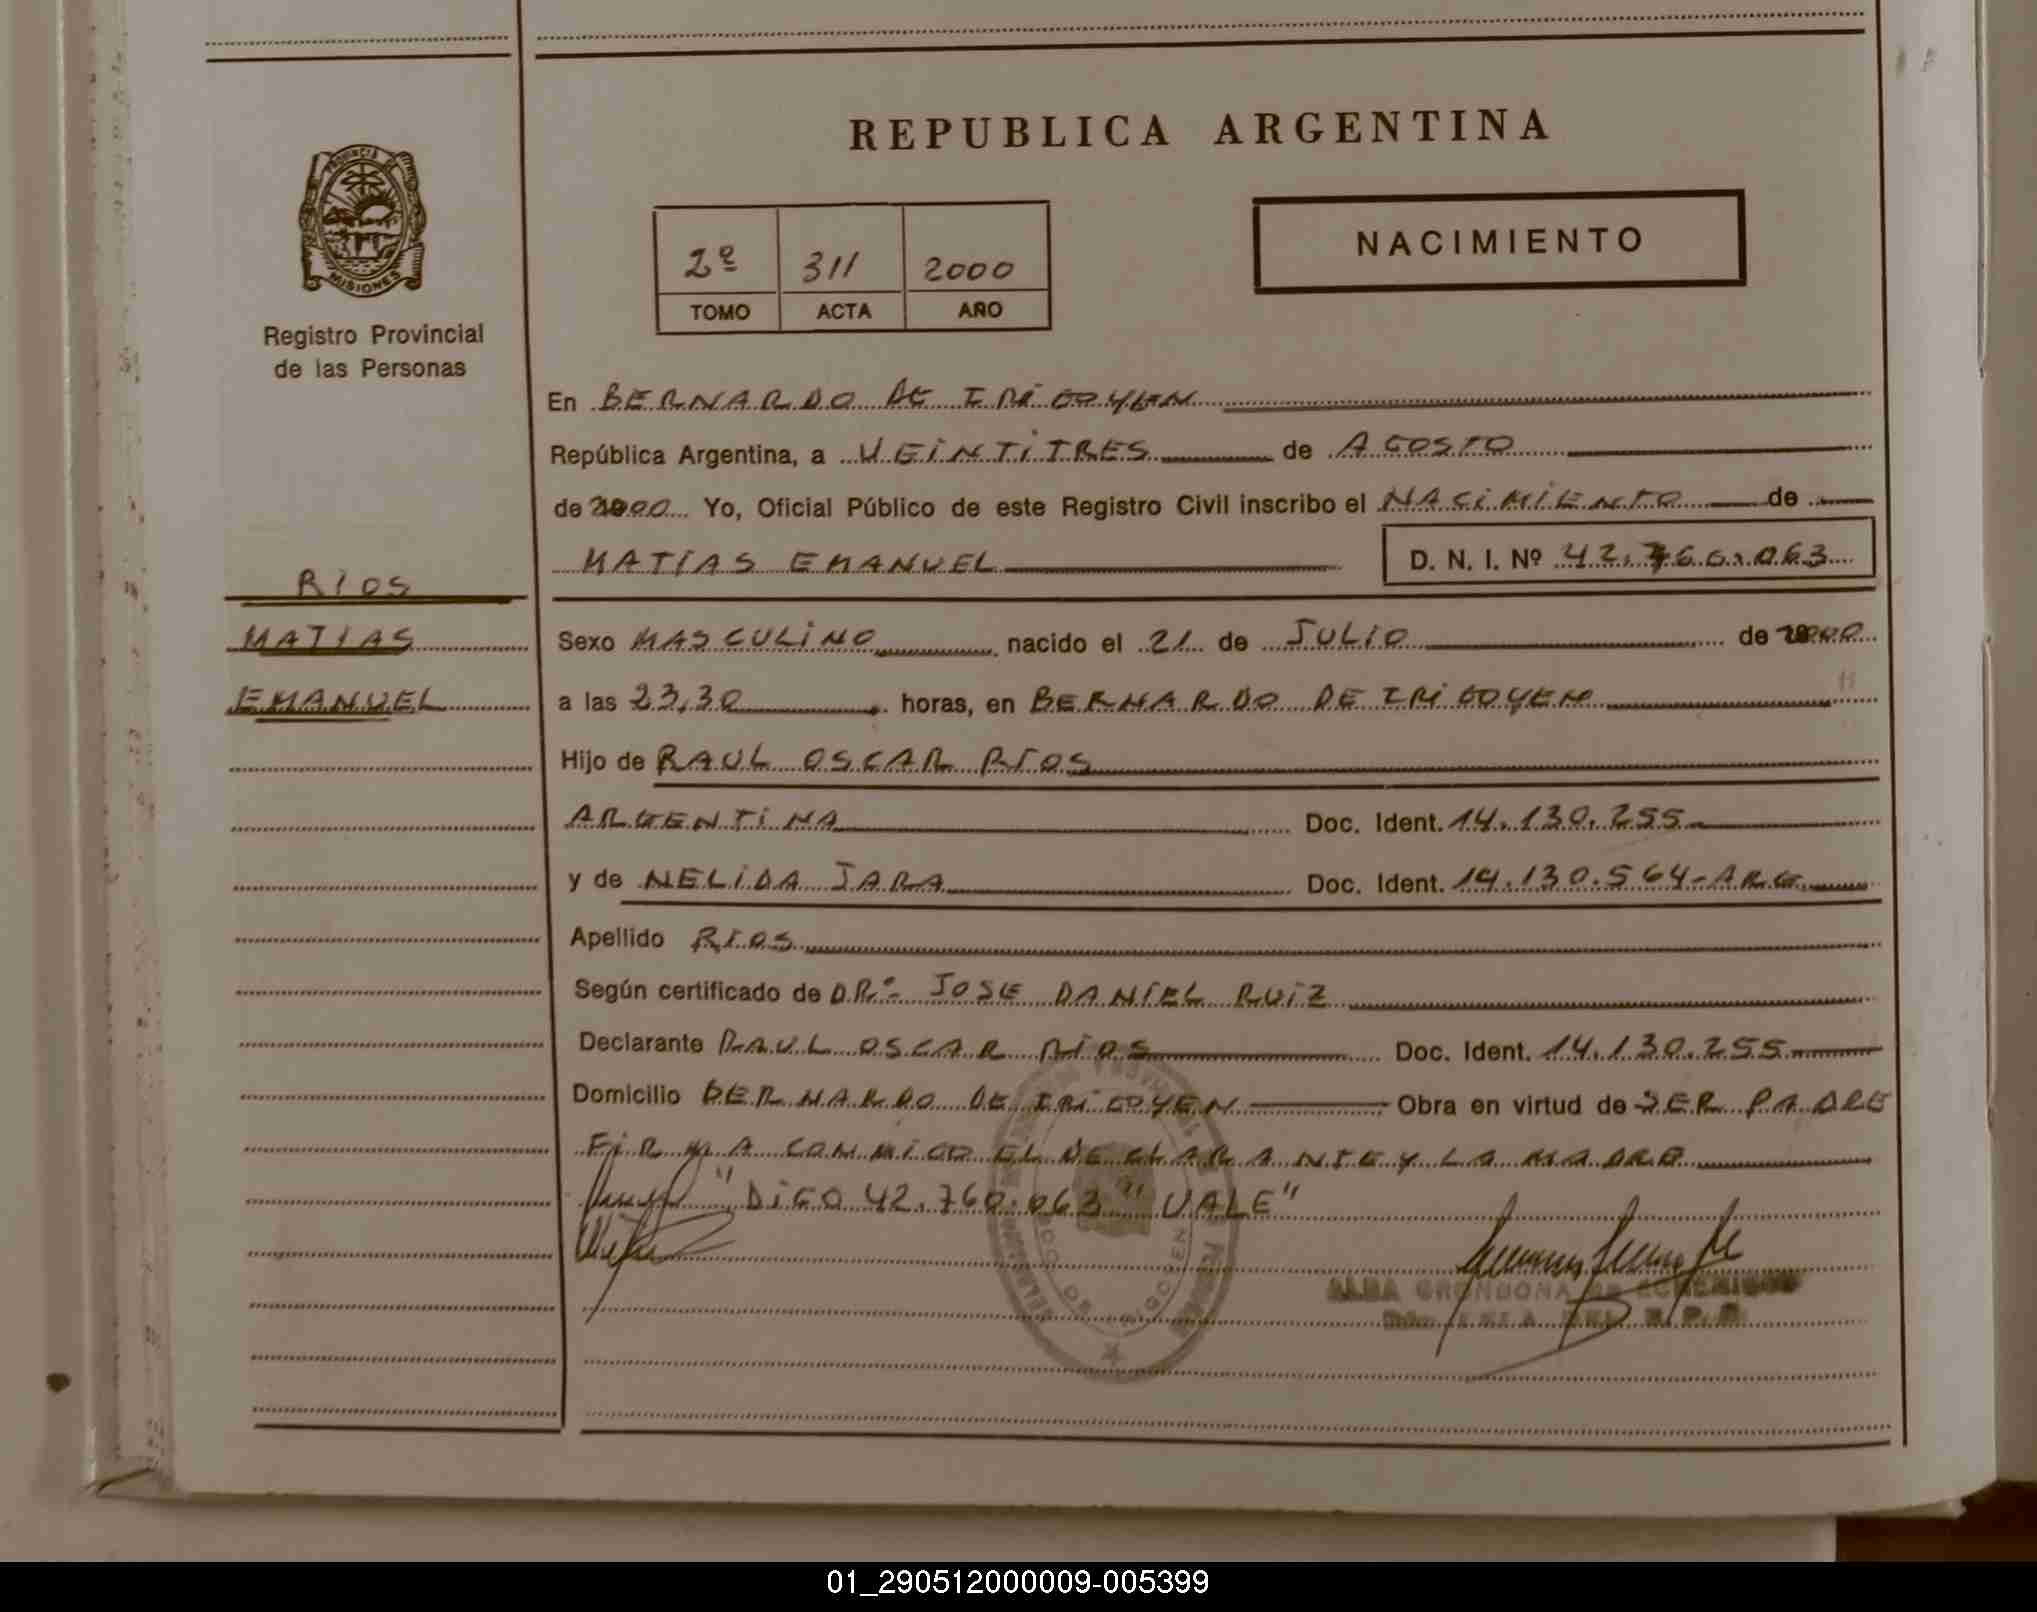 REPUBLICA ARGENTINA
PROVINCIA DE
MISIONES
Registro Provincial
de las Personas
2º 311 2000
TOMO ACTA AÑO
NACIMIENTO
En BERNARDO DE IRIGOYEN
República Argentina, a VEINTITRES de AGOSTO
de 2000 Yo, Oficial Público de este Registro Civil inscribo el NACIMIENTO de
MATIAS EMANUEL D. N. I. Nº 42.760.063
RIOS
MATIAS
EMANUEL
Sexo MASCULINO nacido el 21 de JULIO de 2000
a las 23,30 horas, en BERNARDO DE IRIGOYEN
Hijo de RAUL OSCAR RIOS
ARGENTINA Doc. Ident. 14.130.255
y de NELIDA JARA Doc. Ident. 14.130.564-ARG
Apellido RIOS
Según certificado de DR.- JOSE DANIEL RUIZ
Declarante RAUL OSCAR RIOS Doc. Ident. 14.130.255
Domicilio BERNARDO DE IRIGOYEN Obra en virtud de SER PADRE
FIRMA CONMIGO EL DECLARANTE Y LA MADRE
"DIGO 42.760.063" VALE"
ALBA GRONDONA DE
01_290512000009-005399